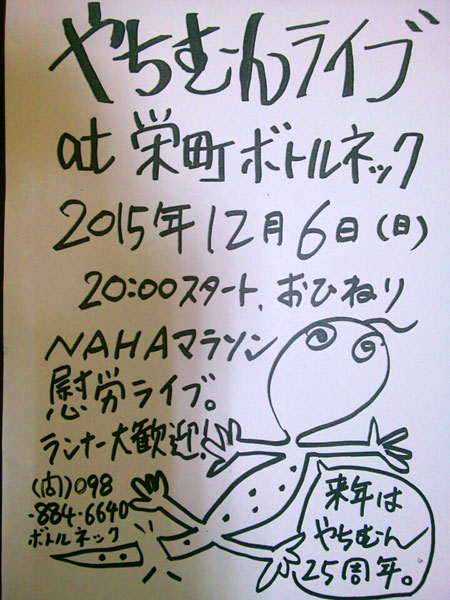 やちむんライブ
at 栄町ボトルネック
2015年12月6日(日)
20:00スタート、おひねり
NAHAマラソン
慰労ライブ。
ランナー大歓迎!
(問)098
-884-6640
ボトルネック
来年は
やちむん
25周年。